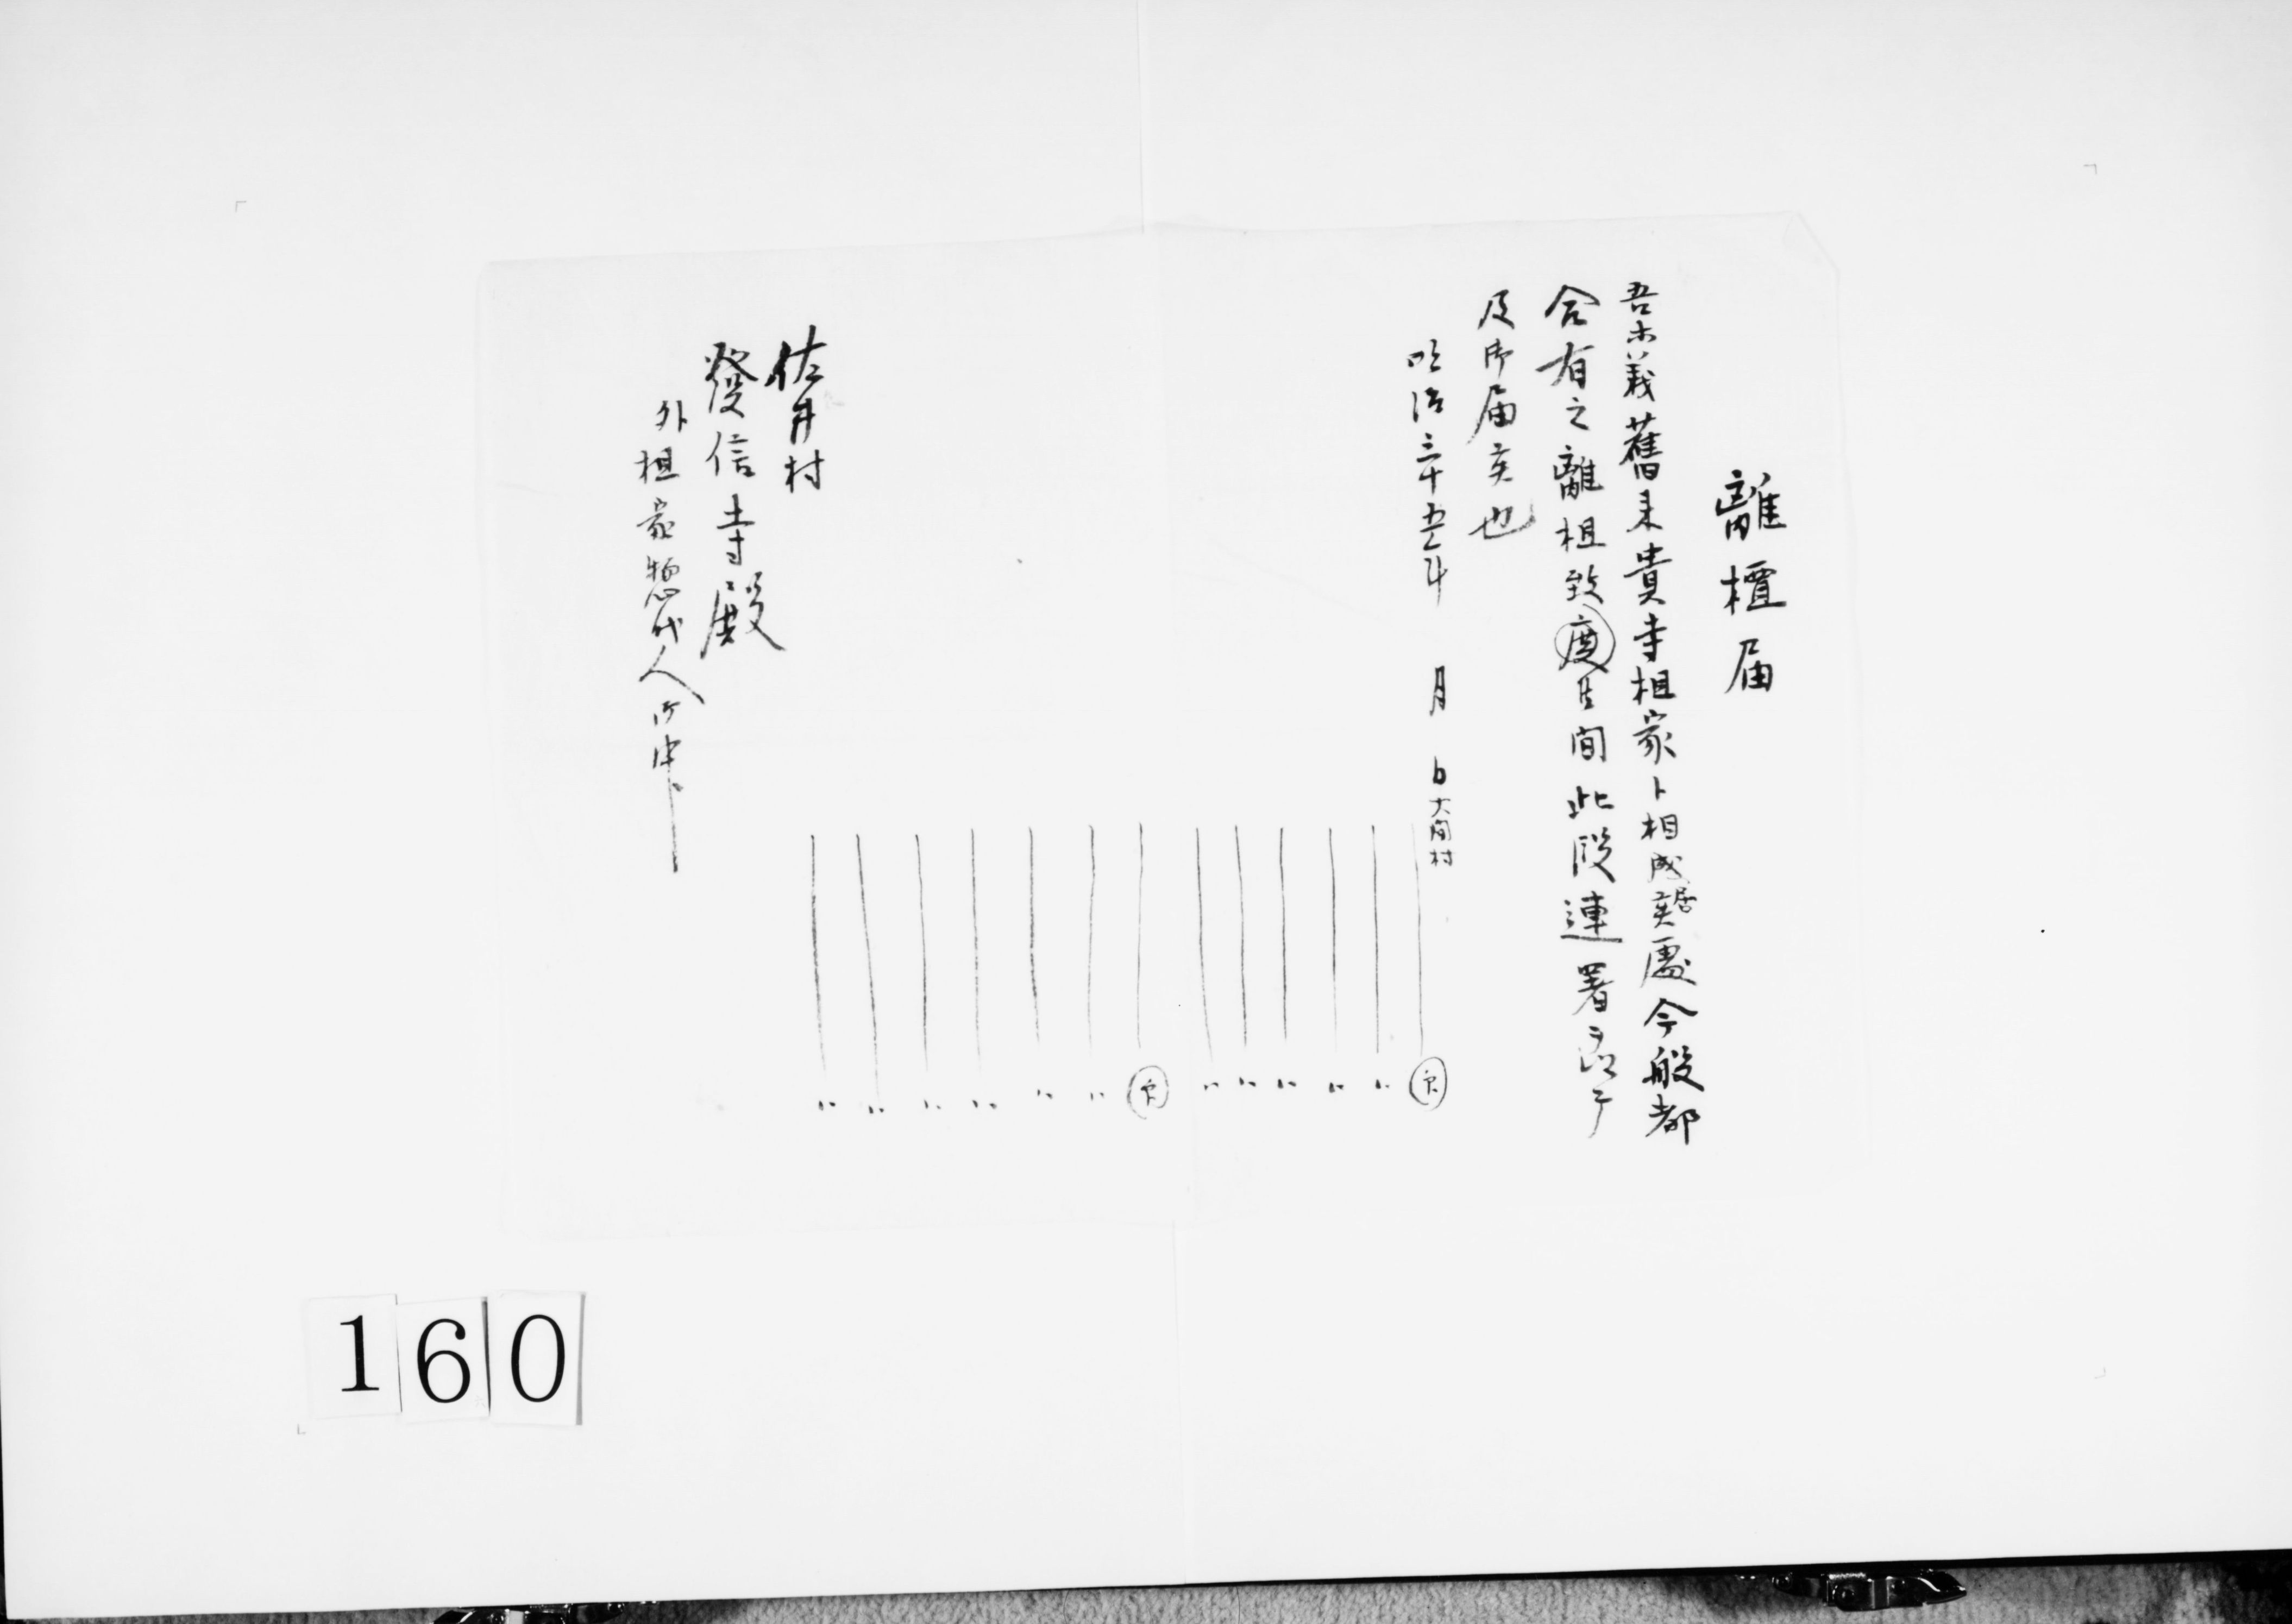 離檀届
吾等義舊来貴寺担家ト相成居候處今般都
合有之離担致度候間此段連署ヲ以テ
及御届候也
明治三十五年 月 日
大間村
佐井村
發信寺殿
外担家惣代人御中
160